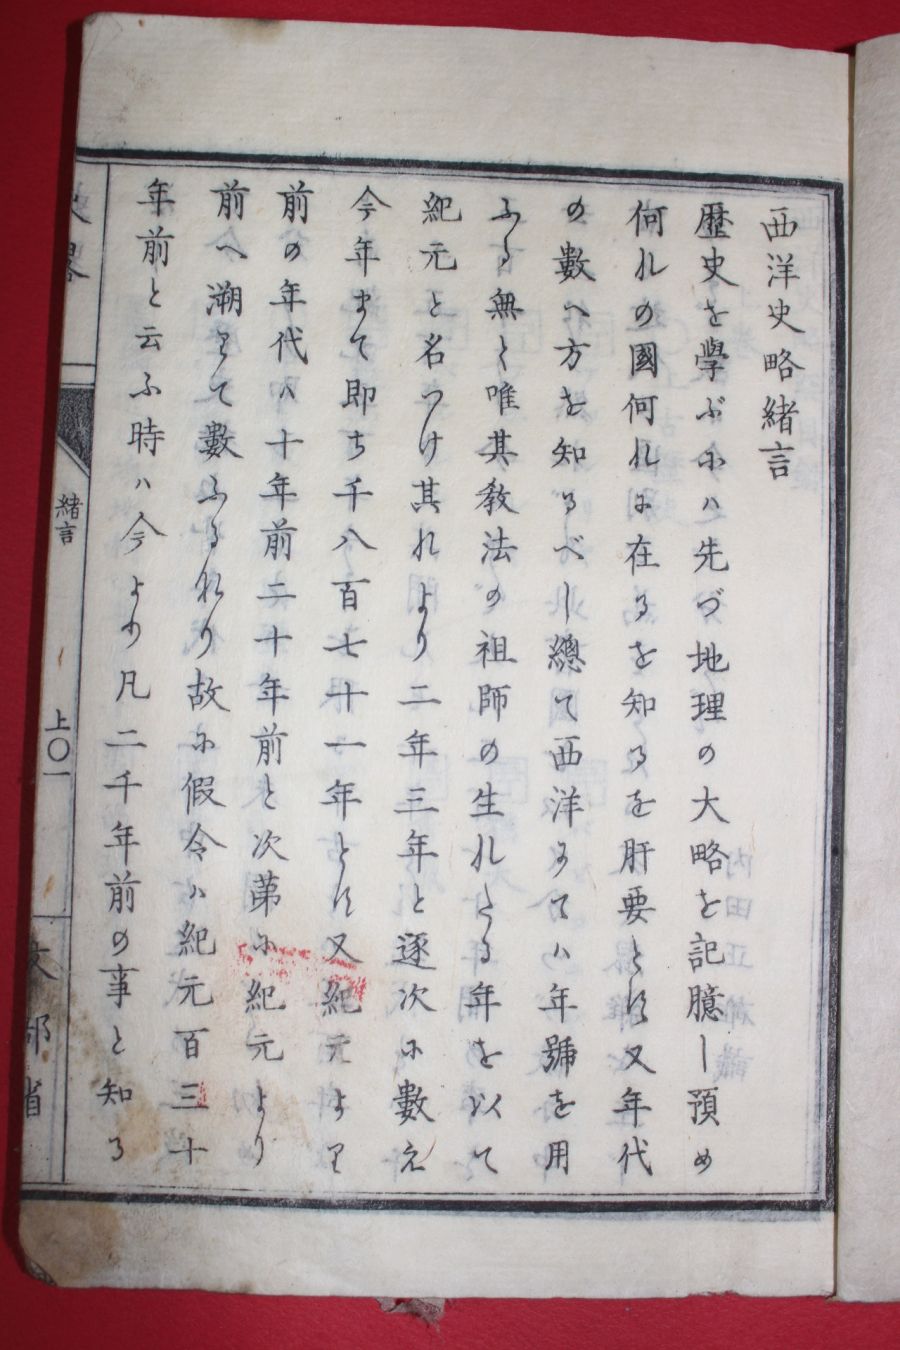 西洋史略緒言
歴史を學ぶにハ先づ地理の大略を記臆し預め
何れの國何れに在るを知るを肝要とす又年代
の數へ方を知るべし總て西洋にてハ年號を用
ふる無く唯其教法の祖師の生れたる年を以て
紀元と名つけ其れより二年三年と逐次に數え
今年まて即ち千八百七十一年とす又紀元より
前の年代ハ十年前二十年前と次第に紀元より
前へ溯りて數ふるなり故に假令ハ紀元百三十
年前と云ふ時ハ今より凡二千年前の事と知る
緒言
上〇一
文部省